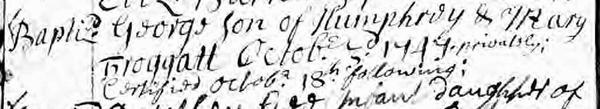 Baptiz.d George Son of Humphrey & Mary
Froggatt Octob.r 3.d 1744 privately;
Certified Octob.r 18.th following;
daughter of